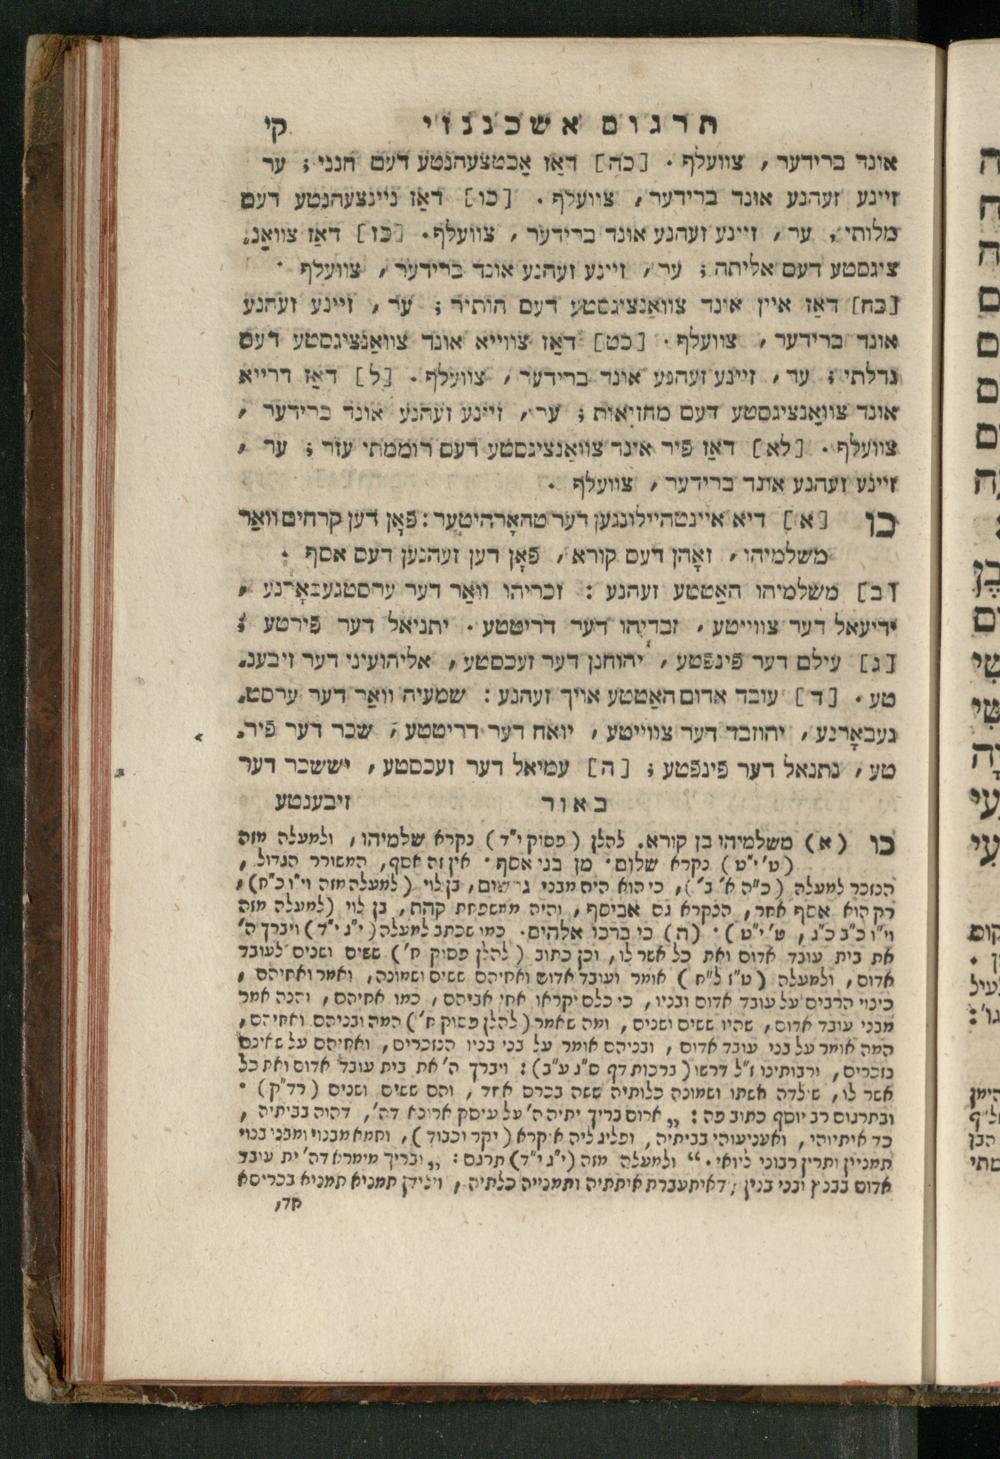 תרגום אשכנזי קי
אונד ברידער, צוועלף. [כה] דאַז אַכטצעהנטע דעם חנני; ער
זיינע זעהנע אונד ברידער, צוועלף. [כו] דאַז ניינצעהנטע דעם
מלותי; ער, זיינע זעהנע אונד ברידער, צוועלף. [כז] דאַז צוואַנ,
ציגסטע דעם אליתה; ער, זיינע זעהנע אונד ברידער, צוועלף.
[כח] דאַז איין אונד צוואַנציגסטע דעם הותיר; ער, זיינע זעהנע
אונד ברידער, צוועלף. [כט] דאַז צווייא אונד צוואַנציגסטע דעם
גדלתי; ער, זיינע זעהנע אונד ברידער, צוועלף. [ל] דאַז דרייא
אונד צוואַנציגסטע דעם מחזיאות; ער, זיינע זעהנע אונד ברידער,
צוועלף. [לא] דאַז פיר אונד צוואַנציגסטע דעם רוממתי עזר; ער,
זיינע זעהנע אונד ברידער, צוועלף.
כו [א] דיא איינטהיילונגען דער טהאָרהיטער: פאָן דען קרחים וואַר
משלמיהו, זאָהן דעם קורא, פאָן דען זעהנען דעם אסף.
[ב] משלמיהו האַטטע זעהנע: זכריהו וואַר דער ערסטגעבאָרנע,
ידיעאל דער צווייטע, זבדיהו דער דריטטע. יתניאל דער פירטע;
[ג] עילם דער פינפטע, יהוחנן דער זעכסטע, אליהועיני דער זיבענ,
טע. [ד] עובד אדום האַטטע אויך זעהנע: שמעיה וואַר דער ערסט,
געבאָרנע, יהוזבד דער צווייטע, יואח דער דריטטע, שכר דער פיר,
טע, נתנאל דער פינפטע; [ה] עמיאל דער זעכסטע, יששכר דער
באור זיבענטע
כו (א) משלמיהו בן קורא. להלן (פסוק י"ד) נקרא שלמיהו, ולמעלה מזה
(ט' י"ט) נקרא שלום. מן בני אסף. אין זה אסף, המשורר הגדול,
הנזכר למעלה (כ"ה א' ב'), כי הוא היה מבני גרשום, בן לוי (למעלה מזה וי"ו כ"ח),
רק הוא אסף אחר, הנקרא גם אביסף, והיה ממשפחת קהת, בן לוי (למעלה מזה
וי"ו כ"ב כ"ג, ט' י"ט). (ה) כי ברכו אלהים. כמו שכתב למעלה (י"ג י"ד) ויברך ה'
את בית עובד אדום ואת כל אשר לו, וכן כתוב (להלן פסוק ח') ששים ושנים לעובד
אדום, ולמעלה (ט"ז ל"ח) אומר ועובד אדום ואחיהם ששים ושמונה, ואמר ואחיהם,
כינוי הרבים על עובד אדום ובניו, כי כלם יקראו אחי אביהם, כמו אחיהם, והנה אמר
מבני עובד אדום, שהיו ששים ושנים, ומה שאמר (להלן פסוק ח') המה ובניהם ואחיהם,
המה אומר על בני עובד אדום, ובניהם אומר על בני בניו הנזכרים, ואחיהם על שאינם
נזכרים, ורבותינו ז"ל דרשו (ברכות דף ס"ג ע"ב): ויברך ה' את בית עובד אדום ואת כל
אשר לו, שילדה אשתו ושמונה כלותיה ששה בכרס אחד, והם ששים ושנים (רד"ק).
ובתרגום רב יוסף כתוב פה: „ארום בריך יתיה ה' על עיסק ארונא דה', דהוה בביתיה,
כד איתיוהי, ואעניעוהי בביתיה, ופליג ליה איקרא (יקר וכבוד), וחמא מבנוי ומבני בנוי
תמניין ותרין רבוני ליואי." ולמעלה מזה (י"ג י"ד) תרגם: „ובריך מימרא דה' ית עובד
אדום בבנין ובני בנין; דאיתעברת איתתיה ותמנייה כלתיה, וילידן תמניא תמניא בכריסא
חד,